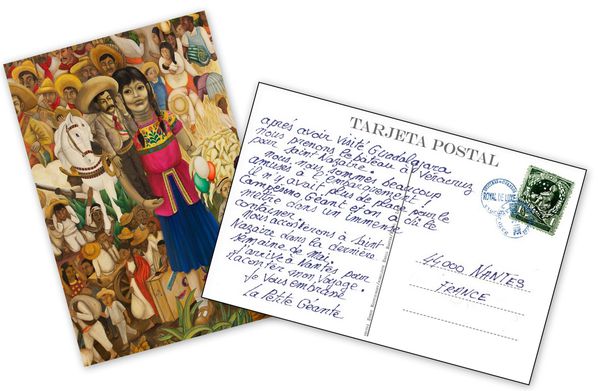 TARJETA POSTAL
après avoir visité Guadalajara
nous prenons le bateau à Veracruz
pour Saint Nazaire.
nous nous sommes beaucoup
amusés à l'embarquement !
il n'y avait plus de place pour le
Campesino Géant et on a dû le
mettre dans un immense
container.
Nous accosterons à Saint-
Nazaire dans la dernière
semaine de Mai.
J'arrive à Nantes pour
raconter mon voyage.
Je vous embrasse
La Petite Géante
ROYAL DE LUXE
44000 NANTES
FRANCE